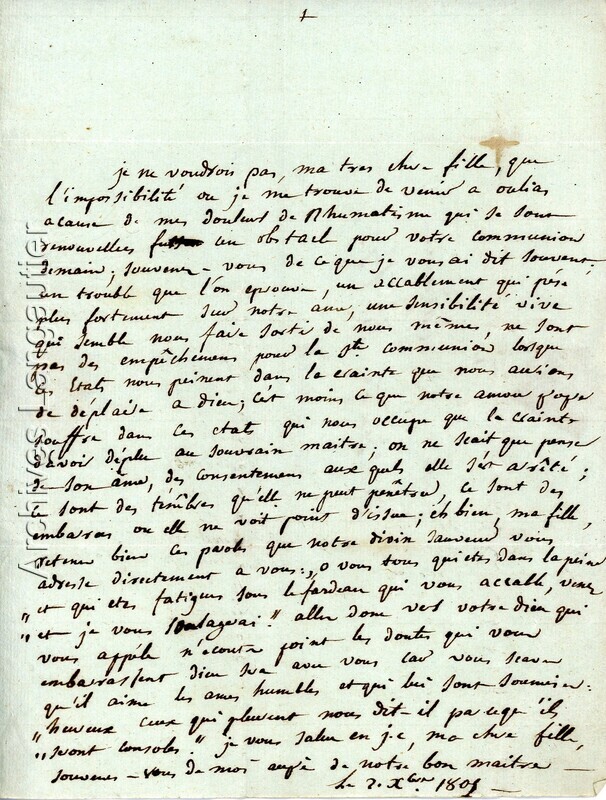 +
je ne voudrois pas, ma tres chre fille, que
l'impossibilité ou je me trouve de venir a oulias
acause de mes douleurs de Rhumatisme qui se sont
renouvelles un obstacle pour votre communion
demain; souvenez-vous de ce que je vous ai dit souvent;
un trouble que l'on eprouve, un accablement qui pése
plus fortement sur notre ame, une sensibilité vive
qui semble nous faire sorti de nous mêmes, ne sont
pas des empêchemens pour la ste communion lorsque
ces Etats nous peinent dans la crainte que nous aurions
de deplaire a dieu; c'ét moins ce que notre amour pope
souffre dans ces etats qui nous occupe que la crainte
d'avoir déplu au souvrain maitre; on ne scait que pense
de son âme, des consentemens aux quels elle s'ét arêté;
ce sont des tenêbres qu'elle ne peut penêtrer, ce sont des
embaras ou elle ne voit point d'issue; eh bien, ma fille,
retener bien ces paroles que notre divin sauveur vous
adresse directement a vous: „ o vous tous qui etes dans la peine
„ et qui etes fatigues sous le fardeau qui vous accable, venez
„ et je vous soulagerai." aller donc vers votre dieu qui
vous appéle n'écouter point les doutes qui vous
embarassent dieu sera avec vous car vous scaver
qu'il aime les ames humbles et qui lui sont soumises:
„ heureux ceux qui pleurent nous dit-il parcequ'ils
„ seront consolés." je vous salue en j c, ma chre fille,
souvenes-vous de moi aupé de notre bon maitre
Le 2. Xbre 180
Archives Lengautier